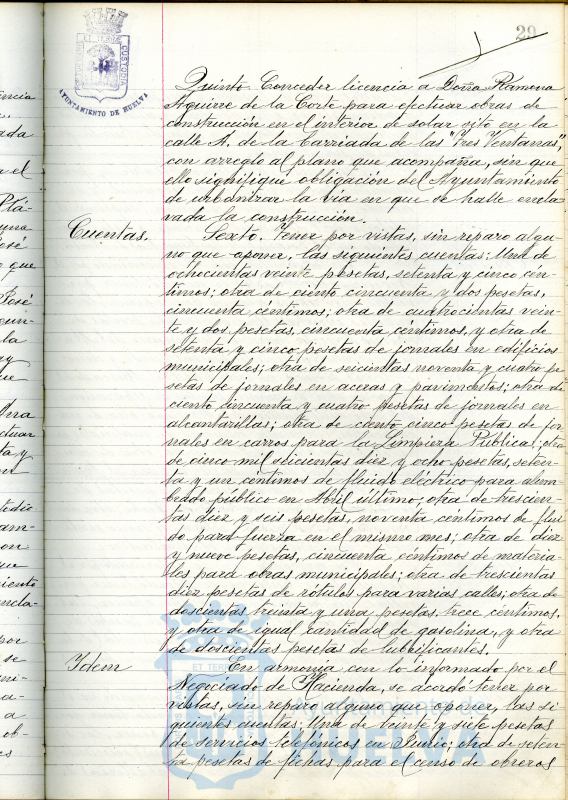 29
AYUNTAMIENTO DE HUELVA
Quinto. Conceder licencia a Doña Ramona
Aguirre de la Corte para efectuar obras de
construcción en el interior de solar sito en la
calle A. de la barriada de las "Tres Ventanas",
con arreglo al plano que acompaña, sin que
ello signifique obligación del Ayuntamiento
de urbanizar la vía en que se halle encla-
vada la construcción.
Cuentas.
Sexto. Tener por vistas, sin reparo algu-
no que oponer, las siguientes cuentas: Una de
ochocientas veinte pesetas, setenta y cinco cén-
timos; otra de ciento cincuenta y dos pesetas,
cincuenta céntimos; otra de cuatrocientas vein-
te y dos pesetas, cincuenta céntimos, y otra de
setenta y cinco pesetas de jornales en edificios
municipales; otra de seicientas noventa y cuatro pe-
setas de jornales en aceras y pavimentos; otra de
ciento cincuenta y cuatro pesetas de jornales en
alcantarillas; otra de ciento cinco pesetas de jor
nales en carros para la Limpieza Pública; otra
de cinco mil seicientas diez y ocho pesetas, seten-
ta y un céntimos de flúido eléctrico para alum-
brado público en Abril último; otra de trescien-
tas diez y seis pesetas, noventa céntimos de flui
do para fuerza en el mismo mes; otra de diez
y nueve pesetas, cincuenta céntimos de materia-
les para obras municipales; otra de trescientas
diez pesetas de rótulos para varias calles; otra de
doscientas treinta y una pesetas, trece céntimos,
y otra de igual cantidad de gasolina, y otra
de doscientas pesetas de lubrificantes.
Idem
En armonía con lo informado por el
Negociado de Hacienda, se acordó tener por
vistas, sin reparo alguno que oponer, las si
guientes cuentas: Una de veinte y siete pesetas
de servicios telefónicos en Junio; otra de seten-
ta pesetas de fichas para el censo de obreros